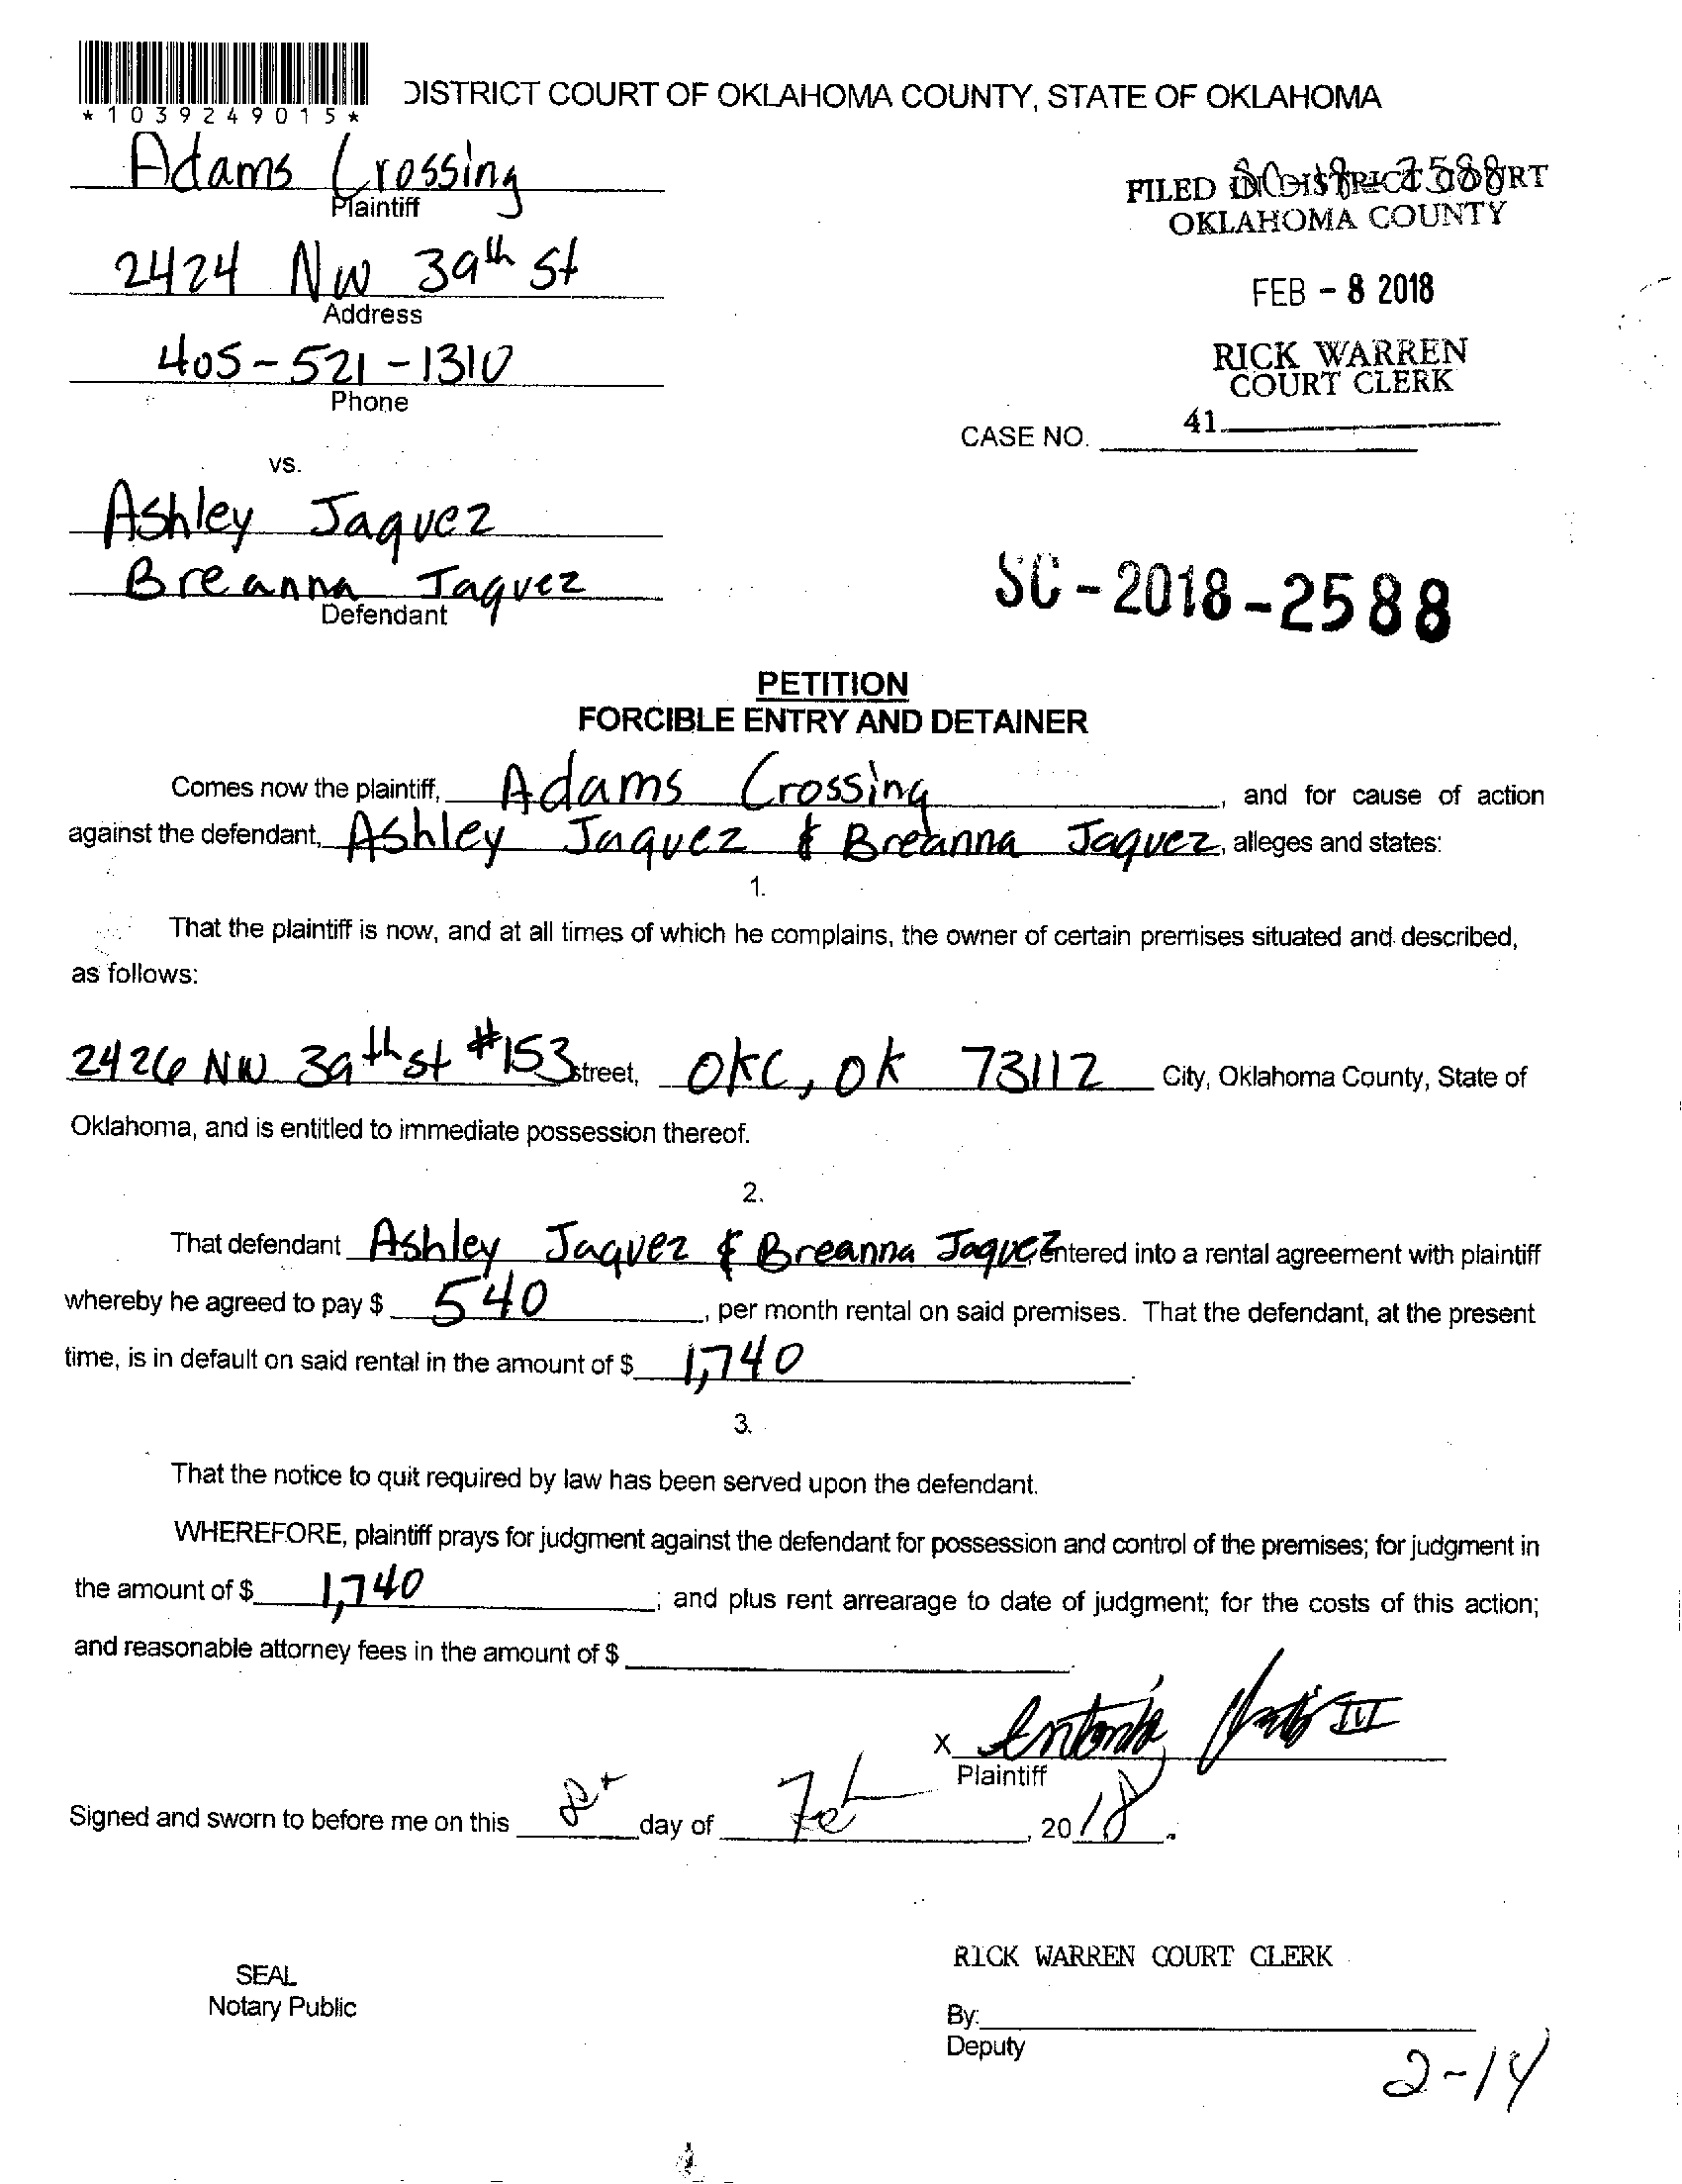 *1039249015*
DISTRICT COURT OF OKLAHOMA COUNTY, STATE OF OKLAHOMA
Adams Crossing
Plaintiff
FILED IN DISTRICT COURT
OKLAHOMA COUNTY
2424 NW 39th St
Address
FEB - 8 2018
405-521-1310
Phone
RICK WARREN
COURT CLERK
41
CASE NO.
vs.
Ashley Jaquez
Breanna Jaquez
Defendant
SC - 2018 - 2588
PETITION
FORCIBLE ENTRY AND DETAINER
Comes now the plaintiff, Adams Crossing, and for cause of action
against the defendant, Ashley Jaquez & Breanna Jaquez, alleges and states:
1.
That the plaintiff is now, and at all times of which he complains, the owner of certain premises situated and described,
as follows:
2426 NW 39th st #153 street, OKC, OK 73112 City, Oklahoma County, State of
Oklahoma, and is entitled to immediate possession thereof.
2.
That defendant Ashley Jaquez & Breanna Jaquez, entered into a rental agreement with plaintiff
whereby he agreed to pay $ 540, per month rental on said premises. That the defendant, at the present
time, is in default on said rental in the amount of $ 1,740.
3.
That the notice to quit required by law has been served upon the defendant.
WHEREFORE, plaintiff prays for judgment against the defendant for possession and control of the premises; for judgment in
the amount of $ 1,740; and plus rent arrearage to date of judgment; for the costs of this action;
and reasonable attorney fees in the amount of $ .
x III
Plaintiff
Signed and sworn to before me on this 8 day of Feb, 2018.
RICK WARREN COURT CLERK
SEAL
Notary Public
By:
Deputy
2-14